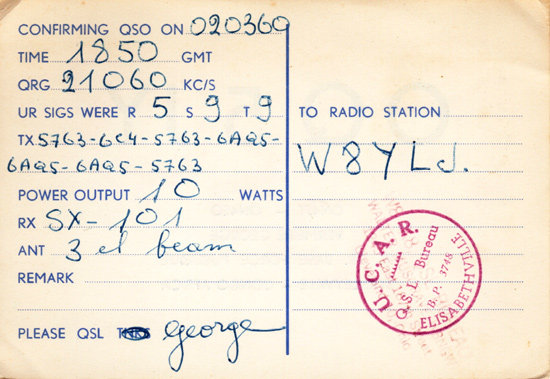 CONFIRMING QSO ON 020360
TIME 1850 GMT
QRG 21060 KC/S
UR SIGS WERE R 5 S 9 T 9
TX 5763-6C4-5763-6AQ5-
6AQ5-6AQ5-5763
POWER OUTPUT 10 WATTS
RX SX-101
ANT 3 el beam
REMARK
PLEASE QSL TNKS George
TO RADIO STATION
W8YLJ.
U.C.A.R.
Q.S.L. Bureau
B.P. 3748
ELISABETHVILLE